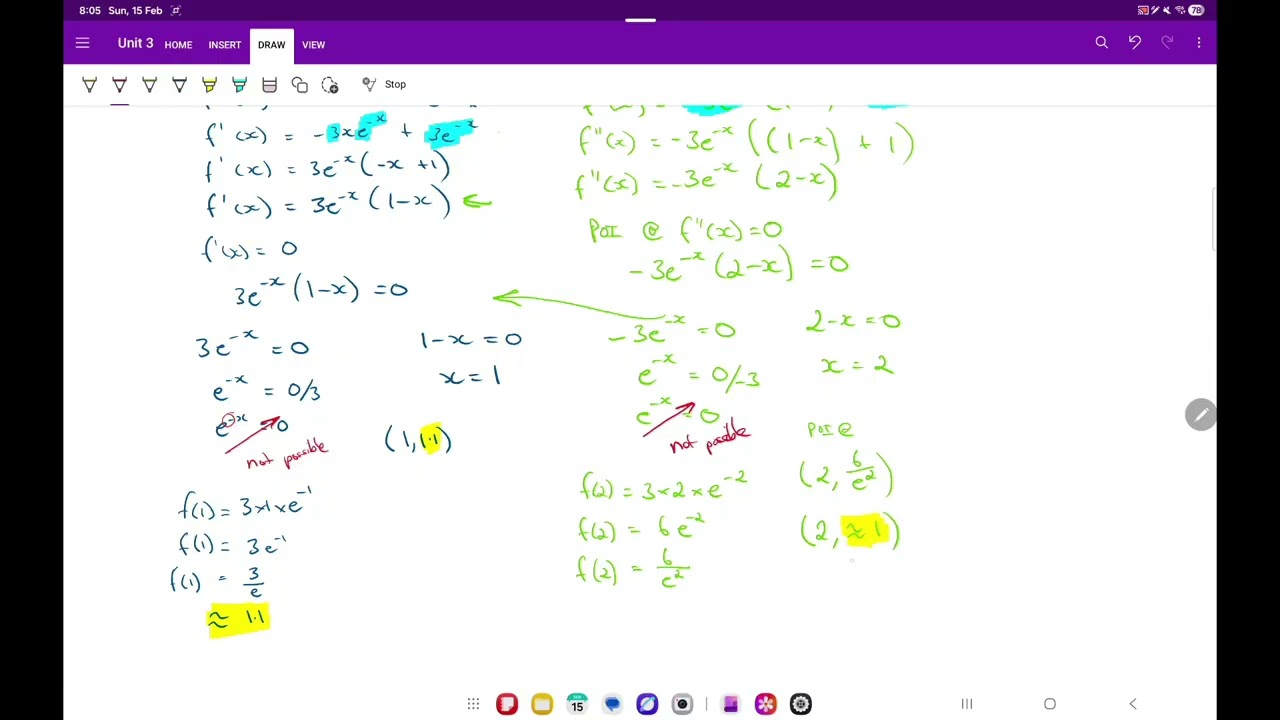 8:05 Sun, 15 Feb
78
Unit 3 HOME INSERT DRAW VIEW
Stop
f'(x) = -3xe^-x + 3e^-x
f'(x) = 3e^-x(-x+1)
f'(x) = 3e^-x(1-x) ←
f'(x) = 0
3e^-x(1-x) = 0
3e^-x = 0
e^-x = 0/3
e^-x = 0
not possible
1-x = 0
x = 1
(1, 1.1)
f(1) = 3×1×e^-1
f(1) = 3e^-1
f(1) = 3/e
≈ 1.1
f''(x) = -3e^-x((1-x) + 1)
f''(x) = -3e^-x(2-x)
POI @ f''(x) = 0
-3e^-x(2-x) = 0
-3e^-x = 0
e^-x = 0/-3
e^-x = 0
not possible
2-x = 0
x = 2
f(2) = 3×2×e^-2
f(2) = 6e^-2
f(2) = 6/e^2
POI @
(2, 6/e^2)
(2, ≈ 1)
15